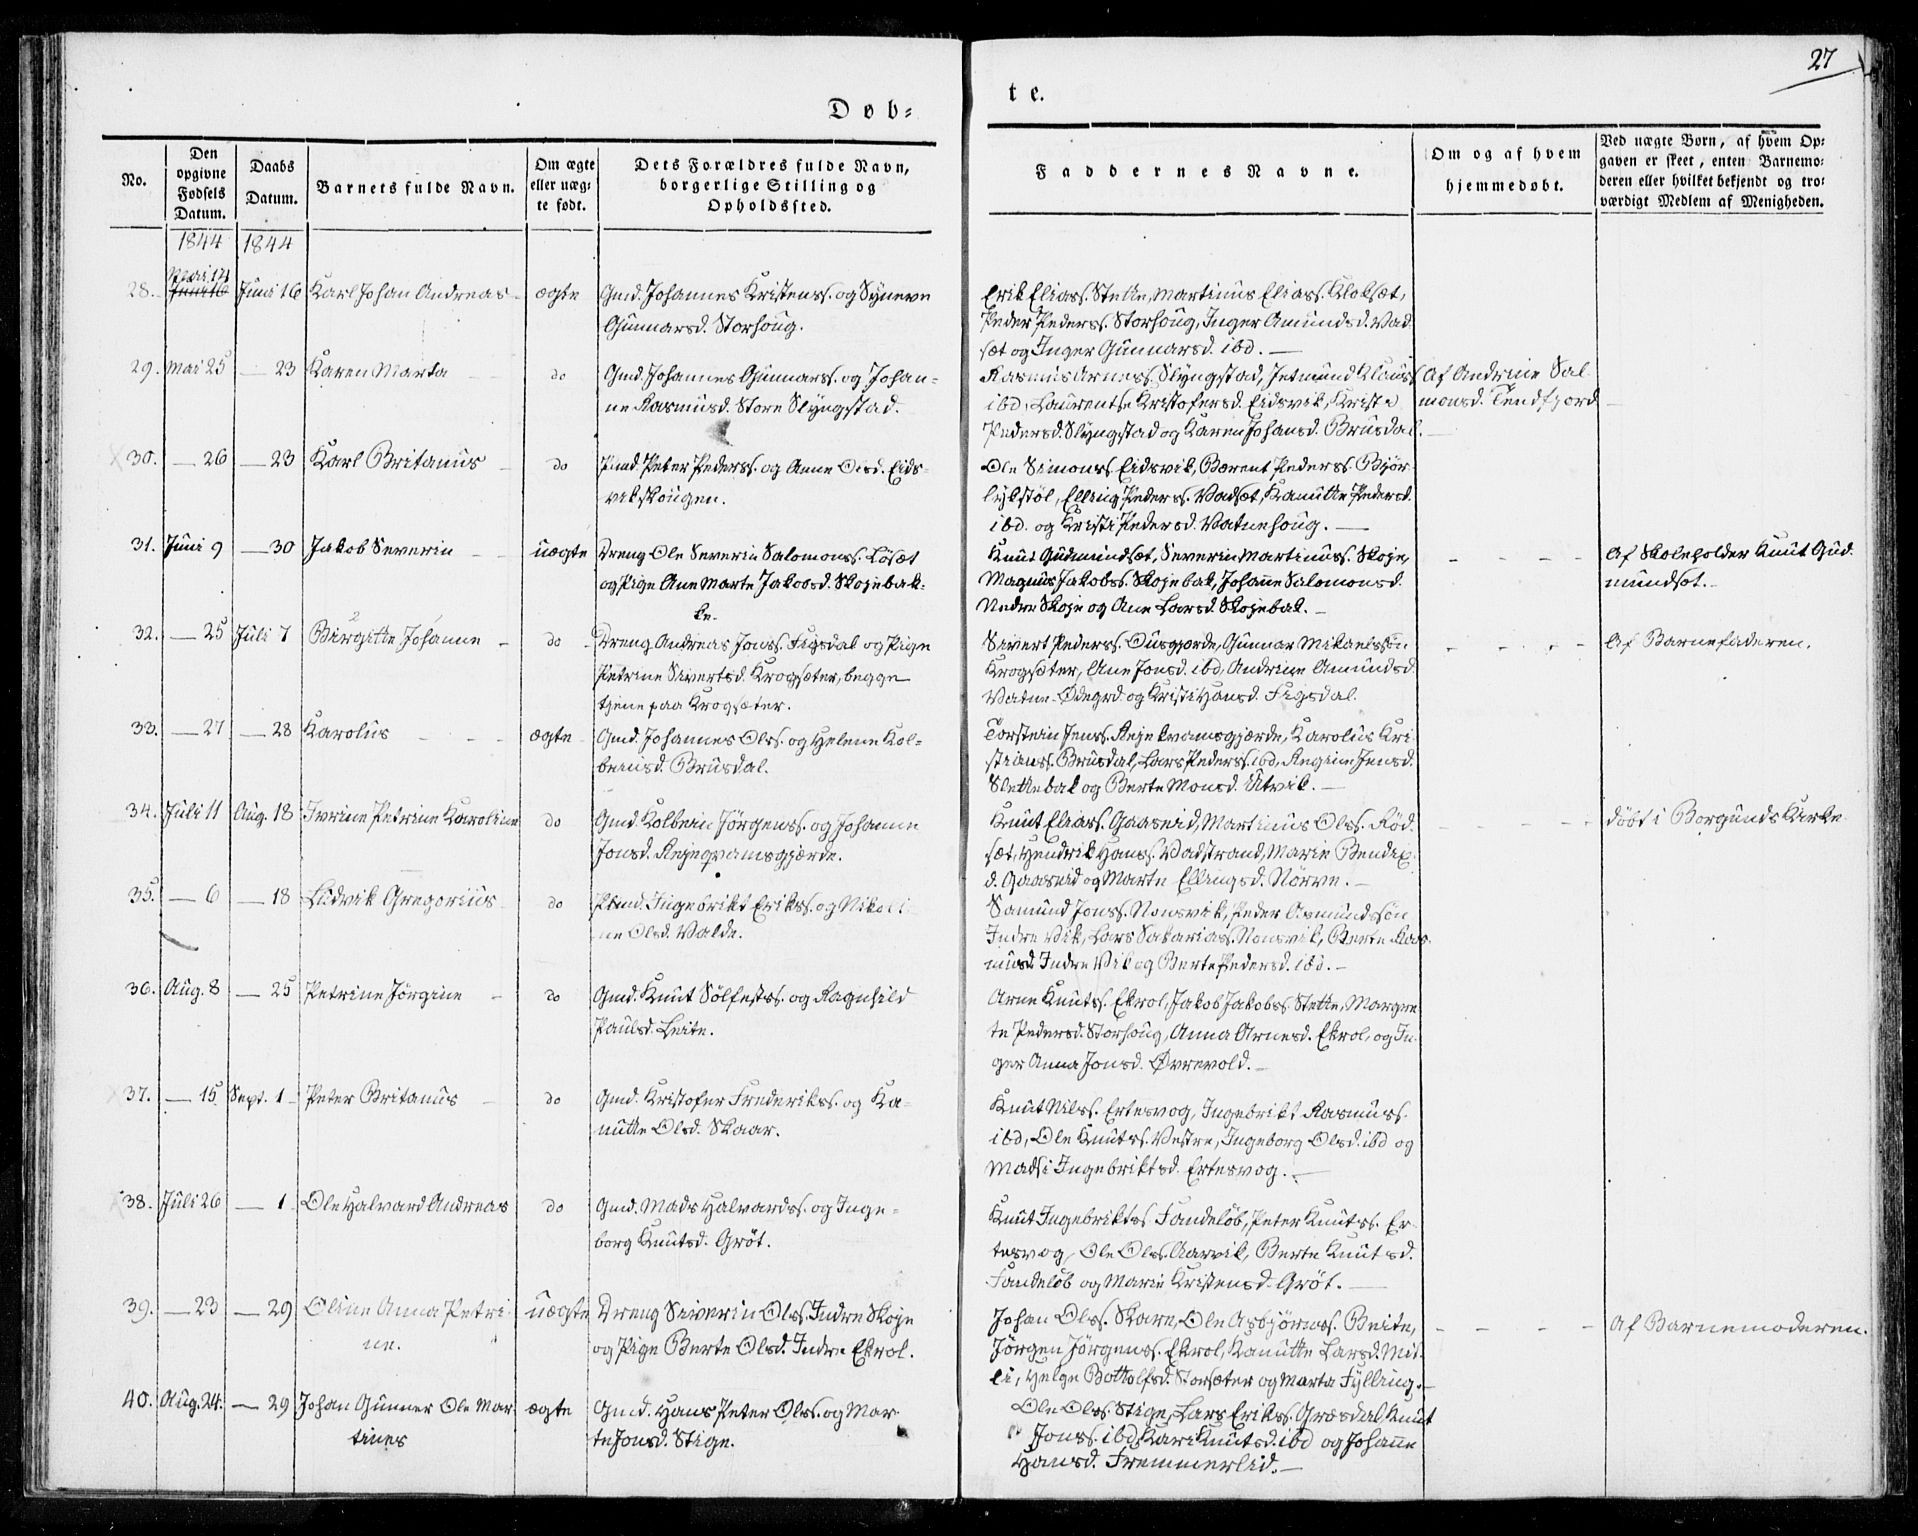 27
Døb=
te.
No.
Den opgivne Fødsels Datum.
Daabs Datum.
Barnets fulde Navn.
Om ægte eller uæg= te født.
Dets Forældres fulde Navn, borgerlige Stilling og Opholdssted.
Faddernes Navne.
Om og af hvem hjemmedøbt.
Ved uægte Børn, af hvem Op= gaven er skeet, enten Barnemo= deren eller hvilket bekjendt og tro= værdigt Medlem af Menigheden.
1844 1844
28. Mai 14 Juni 16 Juni 16 Karl Johan Andreas ægte Gmd. Johannes Kristenss. og Syneve
Gunnarsd. Storhoug.
Erik Eliass. Stette, Martinus Eliass. Klokset,
Peder Pederss. Storhoug, Inger Amundsd. Vad-
sæt og Inger Gunnarsd. ibd. —
29. Mai 25 — 23 Karen Marta do Gmd. Johannes Gunnarss. og Johan=
ne Rasmusd. Store Slyngstad.
Rasmus Arness. Slyngstad, Jetmund Klauss.
ibd, Laurentse Kristofersd. Eidsvik, Kristi
Pedersd. Slyngstad og Karen Johansd. Brusdal.
Af Andrine Sal
monsd. Tendfjord
30. — 26 — 23 Karl Britanus do Pmd. Peter Pederss. og Anne Olsd. Eids=
vikskougen.
Ole Simonss. Eidsvik, Bærent Pederss. Bjør-
lykstøl, Elling Pederss. Vadset, Kanutte Pedersd.
ibd. og Kristi Pedersd. Vatnehoug. —
31. Juni 9 — 30 Jakob Severin uægte Dreng Ole Severin Salomonss. Løset
og Pige Ane Marte Jakobsd. Skojebak=
ke.
Knut Gudmundset, Severin Martinuss. Skoje,
Magnus Jakobss. Skojebak, Johanne Salomonsd.
Nedre Skoje og Ane Larsd. Skojebak. —
Af Skoleholder Knut Gud-
mundset.
32. — 25 Juli 7 Birgitte Johanne do Dreng Andreas Jonss. Figsdal og Pige
Petrine Sivertsd. Krogsæter, begge
tjene paa Krogsæter.
Sivert Pederss. Ousgjerde, Gunnar Mikaelssøn
Krogsæter, Ane Jonsd. ibd, Andrine Amundsd.
Vatne-Ødegrd. og Kristi Hansd. Figsdal.
Af Barnefaderen.
33. — 27 — 28 Karolus ægte Gmd. Johannes Olss. og Helene Kol=
beinsd. Brusdal.
Torstein Jenss. Rejekvamsgjærde, Karolus Kri-
stianss. Brusdal, Lars Pederss. ibd, Regine Jensd.
Slettebak og Berte Monsd. Utvik. —
34. Juli 11 Aug. 18 Ivrine Petrine Karoline do Gmd. Kolbein Jörgenss. og Johanne
Jonsd. Rejeqvamsgjærde.
Knut Eliass. Gaaseid, Martinus Olss. Rød-
sæt, Hendrik Hanss. Vadstrand, Marie Bendix-
d. Gaaseid og Marte Ellingsd. Nörve. —
döbt i Borgunds Kirke
35. — 6 — 18 Ludvik Gregorius do Plmd. Ingebrikt Erikss. og Nikoli
ne Olsd. Valde.
Samund Jonss. Nonsvik, Peder Asmundssøn
Indre Vik, Lars Sakarias. Nonsvik, Berte Ras-
musd. Indre Vik og Berte Pedersd. ibd. —
36. Aug. 8 — 25 Petrine Jörgine do Gmd. Knut Sölfestss. og Ragnhild
Paulsd. Leite.
Arne Knutss. Ekrol, Jakob Jakobss. Stette, Margre
te Pedersd. Storhoug, Anna Arnesd. Ekrol, og In-
ger Anna Jonsd. Øvrevold. —
37. — 15 Sept. 1 Peter Britanus do Gmd. Kristofer Frederikss. og Ka=
nutte Olsd. Skaar.
Knut Nilss. Ertesvog, Ingebrikt Rasmuss.
ibd, Ole Knutss. Vestre, Ingeborg Olsd. ibd og
Madsi Ingebriktsd. Ertesvog. —
38. Juli 26 — 1 Ole Halvard Andreas do Gmd. Mads Halvardss. og Inge=
borg Knutsd. Gröt.
Knut Ingebriktss. Fandelöb, Peter Knutss. Er-
tesvog, Ole Olss. Aarvik, Berte Knutsd.
Fandelöb og Marie Kristensd. Gröt. —
39. — 23 — 29 Oline Anna Petri
ne.
uægte Dreng Siverin Olss. Indre Skoje
og Pige Berte Olsd. Indre Ekrol.
Johan Olss. Skare, Ole Asbjørnss. Beite,
Jørgen Jørgenss. Ekrol, Kanutte Larsd. Mit-
li, Helge Bottolfsd. Storsæter og Marta Fylling. —
Af Barnemoderen.
40. Aug. 24. — 29 Johan Gunner Ole Mar
tines
ægte Gmd. Hans Peter Olss. og Mar
te Jonsd. Stige.
Ole Olss. Stige, Lars Erikss. Græsdal, Knut
Jonss. ibd, Kari Knutsd. ibd og Johanne
Hansd. Fremmerlid. —